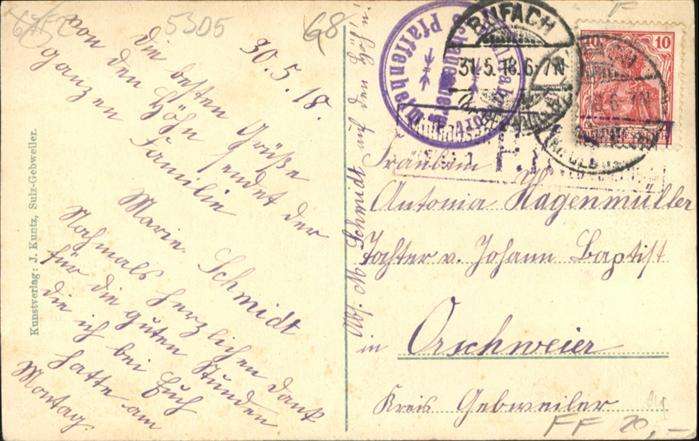 5305
68
30.5.18.
Die besten Grüße
von den Höhn sendet der
ganzen Familie
Marie Schmidt
Nochmals herzlichen Dank
für die guten Stunden
die ich bei Euch
hatte am
Montag.
Kunstverlag: J. Kuntz, Sulz-Gebweiler.
Abs. M. Schmidt auf den Höh'n
Pfaffenheim
RUFACH
31.5.18.6-7N
10
Fräulein
Antonia Hagenmüller
Tochter v. Johann Baptist
in Orschweier
Kreis Gebweiler
FF 20,-